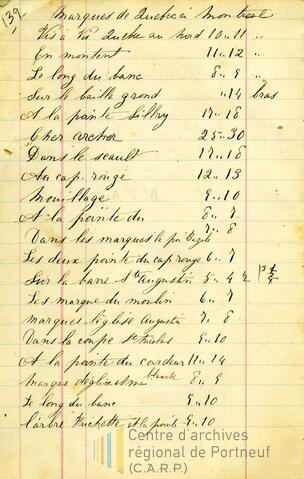 139
Marques de Quebec à Montreal
Vis à Vis Quebec au Nord 10 " 11 "
En montent 11 " 12 "
Le long du banc 8 " 9 "
Sur le baille grond " 14 bras
A la pointe Sillry 17 " 18
Cher archer 25 " 30
Dans le seault 17 " 18
Au cap rouge 12 " 13
Mouillage 9 " 10
A la pointe du 6 " 7
7 " 8
Dans les marques le
Les deux pointe du cap rouge 6 " 7
Sur la barre St Augustin 5 " 4 1/2
Les marque du moulin 6 " 7
marques l'église Augustin 7 " 8
Dans la coupe St Nicolas 9 " 10
A la pointe du cardeur 11 " 14
marque d'église 8 " 9
Le long du banc 9 " 10
l'arbre et la pointe 9 " 10
Centre d'archives
régional de Portneuf
(C.A.R.P.)